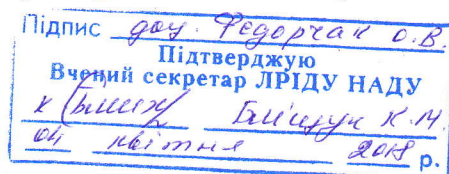 Підпис доц. Федорчак О.В.
Підтверджую
Вчений секретар ЛРІДУ НАДУ
К. М.
04 квітня 2018 р.